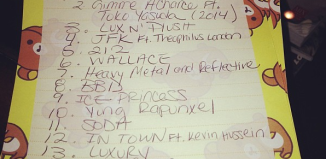 2 Gimme A Chance Ft.
Tuko Yasuda (2014)
3. LUX N' PRUSH
4. JFK Ft. Theophilus London
5. 212
6. WALLACE
7. Heavy Metal and Reflective
8. BBD
9. ICE PRINCESS
10. Yung Rapunxel
11. SODA
12. IN TOWN Ft. Kevin Hussein
13. LUXURY